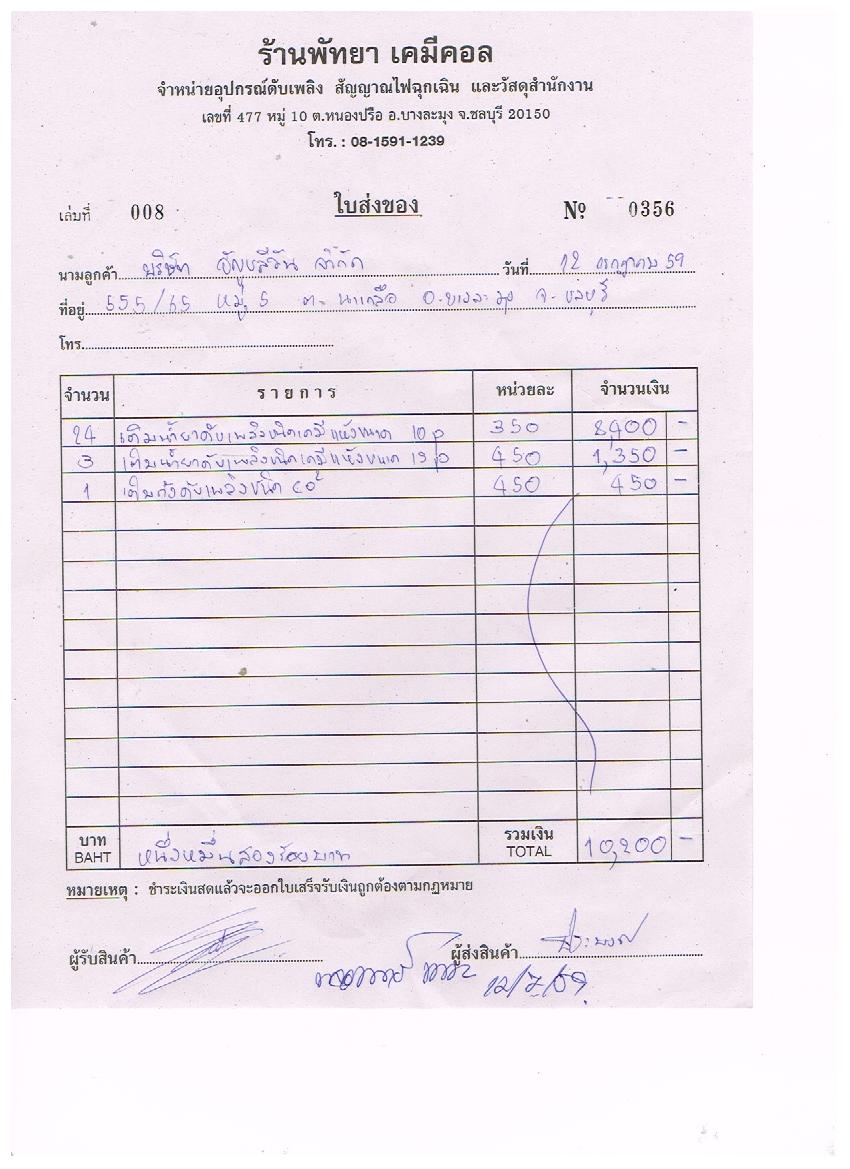 ร้านพัทยา เคมีคอล
จำหน่ายอุปกรณ์ดับเพลิง สัญญาณไฟฉุกเฉิน และวัสดุสำนักงาน
เลขที่ 477 หมู่ 10 ต.หนองปรือ อ.บางละมุง จ.ชลบุรี 20150
โทร. : 08-1591-1239
เล่มที่ 008 ใบส่งของ Nº 0356
นามลูกค้า บริษัท จำกัด วันที่ 12 กรกฎาคม 59
ที่อยู่ 555/65 หมู่ 5 ต. นาเกลือ อ.บางละมุง จ. ชลบุรี
โทร.
จำนวน รายการ หน่วยละ จำนวนเงิน
24 เติมน้ำยาดับเพลิงชนิดเคมีแห้งขนาด 10 p 350 8,400 -
3 เติมน้ำยาดับเพลิงชนิดเคมีแห้งขนาด 15 p 450 1,350 -
1 เติมถังดับเพลิงชนิด CO² 450 450 -
บาท หนึ่งหมื่นสองร้อยบาท รวมเงิน 10,200 -
BAHT TOTAL
หมายเหตุ : ชำระเงินสดแล้วจะออกใบเสร็จรับเงินถูกต้องตามกฎหมาย
ผู้รับสินค้า ผู้ส่งสินค้า
12/7/59